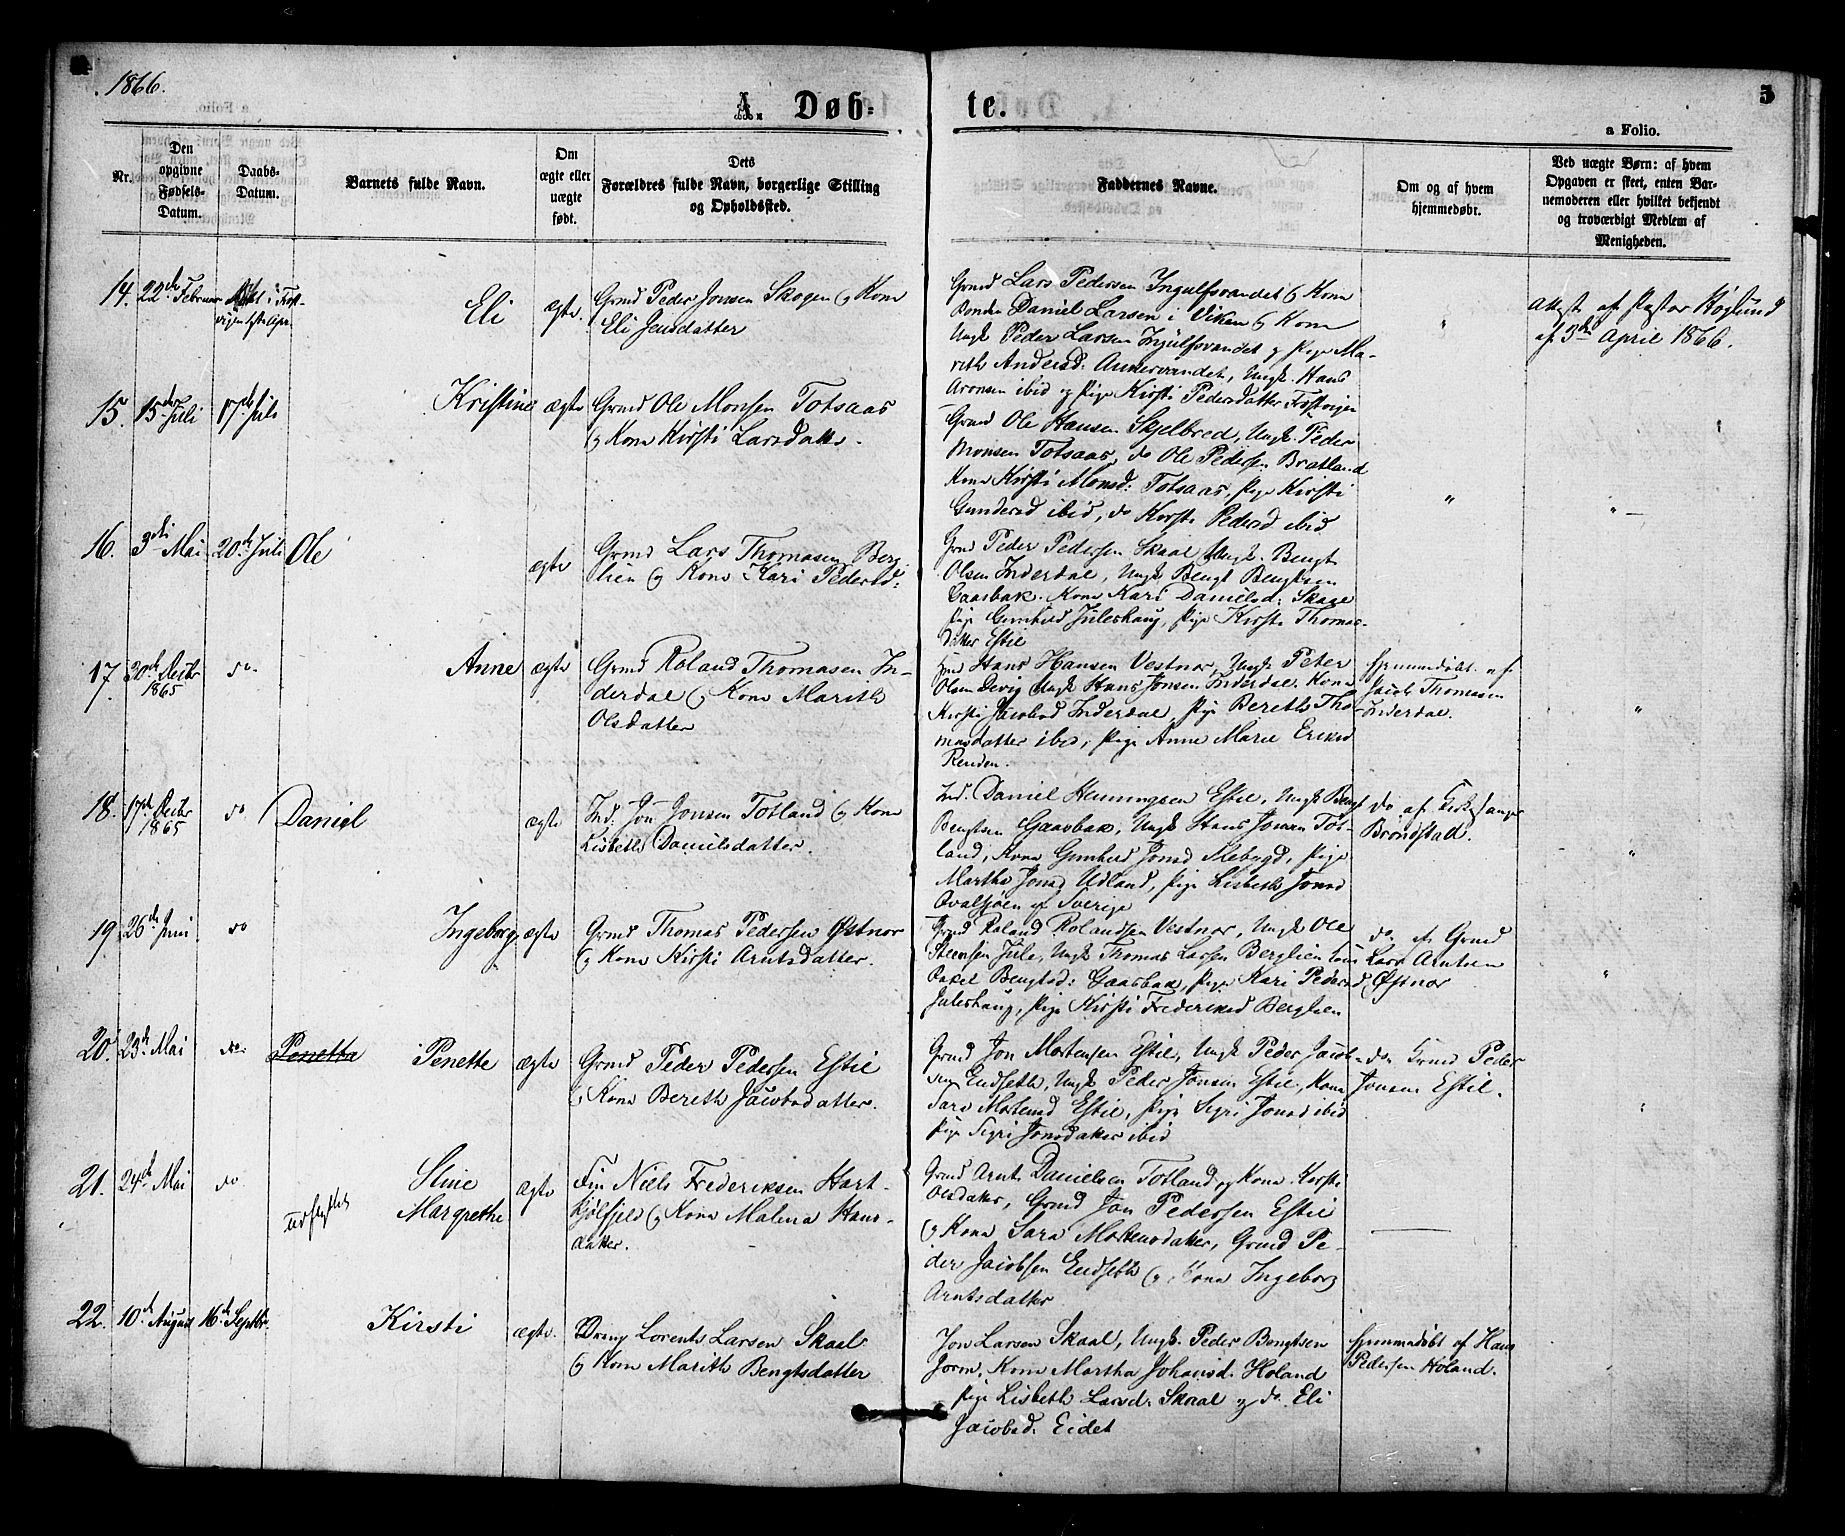 1866.
A. Døb-
te.
5
a Folio.
Nr.
Den
opgivne
Fødsels-
Datum.
Daabs-
Datum.
Barnets fulde Navn.
Om
ægte eller
uægte
født.
Dets
Forældres fulde Navn, borgerlige Stilling
og Opholdssted.
Faddernes Navne.
Om og af hvem
hjemmedøbt.
Ved uægte Børn: af hvem
Opgaven er skeet, enten Bar-
nemoderen eller hvilket bekjendt
og troværdigt Medlem af
Menigheden.
14. 22de Februar
Eli
ægte
Grmd Peder Jonsen Skogen & Kone
Eli Jensdatter
Grmd Lars Pedersen Ingulfsvandet & Kone
Bonden Daniel Larsen i Viken & Kone
Ungk. Peder Larsen Ingulfsvandet og Pige Ma-
rith Andersd: , Ungk. Hans
Aronsen ibid og Pige Kirsti Pedersdatter
Attest af Pastor
af 3die April 1866.
15. 15de Juli 17de Juli
Kristine
ægte
Grmd Ole Monsen Totsaas
& Kone Kirsti Larsdatter.
Grmd Ole Hansen Skjelbred, Ungk. Peder
Monsen Totsaas, do Ole Pedersen Bratland
Kone Kirsti Monsd: Totsaas, Pige Kirsti
Gundersd ibid, do Kirsti Pedersd ibid
16. 3die Mai 20de Juli Ole
ægte
Grmd Lars Thomasen Berg-
lien & Kone Kari Pedersd:
Grmd Peder Pedersen Skaal Ungk. Bengt
Olsen Inderdal, Ungk Bengt Bengtsen
Gaasbak. Kone Kari Danielsd: Skage
Pige Gunhild Juleshaug, Pige Kirsti Thomas-
datter Estil
17. 30de Decbr
1865
do.
Anne
ægte
Grmd Roland Thomasen In-
derdal & Kone Marith
Olsdatter
Grmd Hans Hansen Vestnor, Ungk Peter
Olsen Devig Ungk Hans Jonsen Inderdal. Kone
Kirsti Jacobsd Inderdal, Pige Bereth Tho-
masdatter ibid, Pige Anne Marie Eriksd
Renden.
Hjemmedøbt af
Jacob Thomasen
Inderdal.
18. 17de Decbr
1865
do
Daniel
ægte
Ind. Jon Jonsen Totland & Kone
Lisbeth Danielsdatter.
Ind. Daniel Hemmingsen Estil, Ungk Bengt
Bengtsen Gaasbak, Ungk Hans Jonsen Tot-
land, Kone Gunhild Jonsd Mebygd, Pige
Martha Jonsd Udland, Pige Lisbeth Jonsd
Qvalsjøen af Sverige
do. af Kirkesanger
Brøndstad.
19. 26de Juni do
Ingeborg
ægte
Grmd Thomas Pedersen Østnor
& Kone Kirsti Arntsdatter.
Grmd Roland Rolandsen Vestnor, Ungk Ole
Steensen Jule, Ungk Thomas Larsen Berglien
Bengtsd: Gaasbak, Pige Kari Pedersd
Juleshaug, Pige Kirsti Frederiksd Berglien
do. af Grmd
Lars Arntsen
Østnor
20. 23de Mai do.
Penetta Penette
ægte
Grmd Peder Pedersen Estil
& Kone Bereth Jacobsdatter.
Grmd Jon Mortensen Estil, Ungk Peder Jacob-
sen Endseth, Ungk Peder Jonsen Estil, Kone
Sara Mortensd Estil, Pige Sigri Jonsd ibid
Pige Sigri Jonsdatter ibid
do. Grmd Peder
Jonsen Estil.
21. 24de Mai do
udflyttet
Stine
Margrethe
ægte
Fin Niels Frederiksen Hart-
kjølfjeld & Kone Malena Hans-
datter.
Grmd Arnt Danielsen Totland og Kone Kirsti
Olsdatter, Grmd Jon Pedersen Estil
& Kone Sara Mortensdatter, Grmd Pe-
der Jacobsen Endseth & Kone Ingeborg
Arntsdatter
22. 10de August 16de Septbr.
Kirsti
ægte.
Dreng Lorents Larsen Skaal
& Kone Marith Bengtsdatter
Jon Larsen Skaal, Ungk. Peder Bengtsen
Jorm, Kone Martha Johansd. Holand
Pige Lisbeth Larsd: Skaal og do. Eli
Jacobsd. Eidet
Hjemmedøbt af Hans
Pedersen Holand.